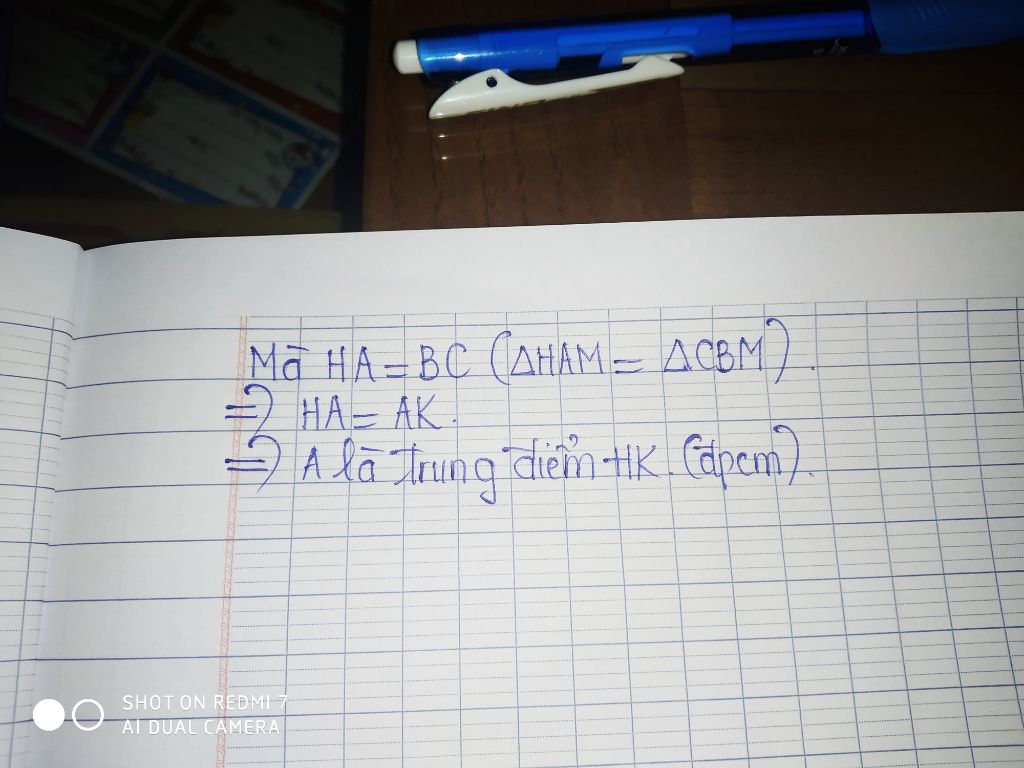 Mà HA = BC (ΔHAM = ΔCBM).
=> HA = AK.
=> A là trung điểm HK. (đpcm).
SHOT ON REDMI 7
AI DUAL CAMERA